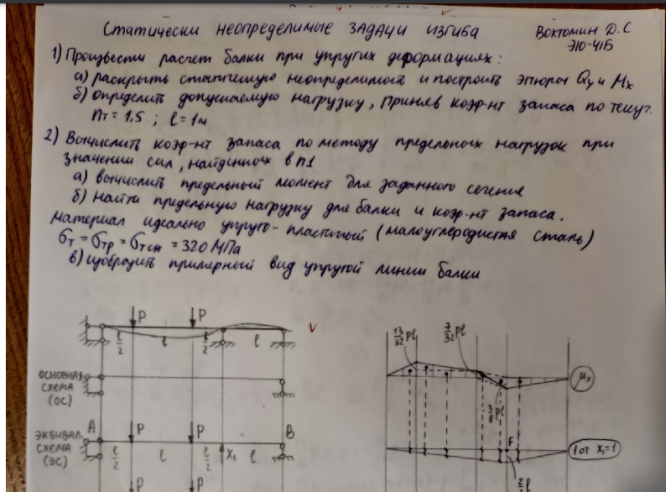 СТАТИЧЕСКИ НЕОПРЕДЕЛИМЫЕ ЗАДАЧИ ИЗГИБА
Вохтомин Д.С
Э10-41Б
1) Произвести расчет балки при упругих деформациях:
а) раскрыть статическую неопределимость и построить эпюры Qy и Mx
б) определить допускаемую нагрузку, приняв коэф-нт запаса по текуч.
nт = 1,5 ; l = 1м
2) Вычислить коэф-нт запаса по методу предельных нагрузок при
значении сил, найденных в п1
а) вычислить предельный момент для заданного сечения
б) найти предельную нагрузку для балки и коэф-нт запаса.
Материал идеально упруго-пластичный (малоуглеродистая сталь)
σт = σтр = σтсж = 320 МПа
в) изобразить примерный вид упругой линии балки
P P
l/2 l l/2 l
ОСНОВНАЯ
СХЕМА
(ОС)
ЭКВИВАЛ.
СХЕМА
(ЭС)
A P P B
l/2 l l/2 X1 l
P P
13/32 Pl 7/32 Pl
Mx
3/8 Pl
F
1 от X1=1